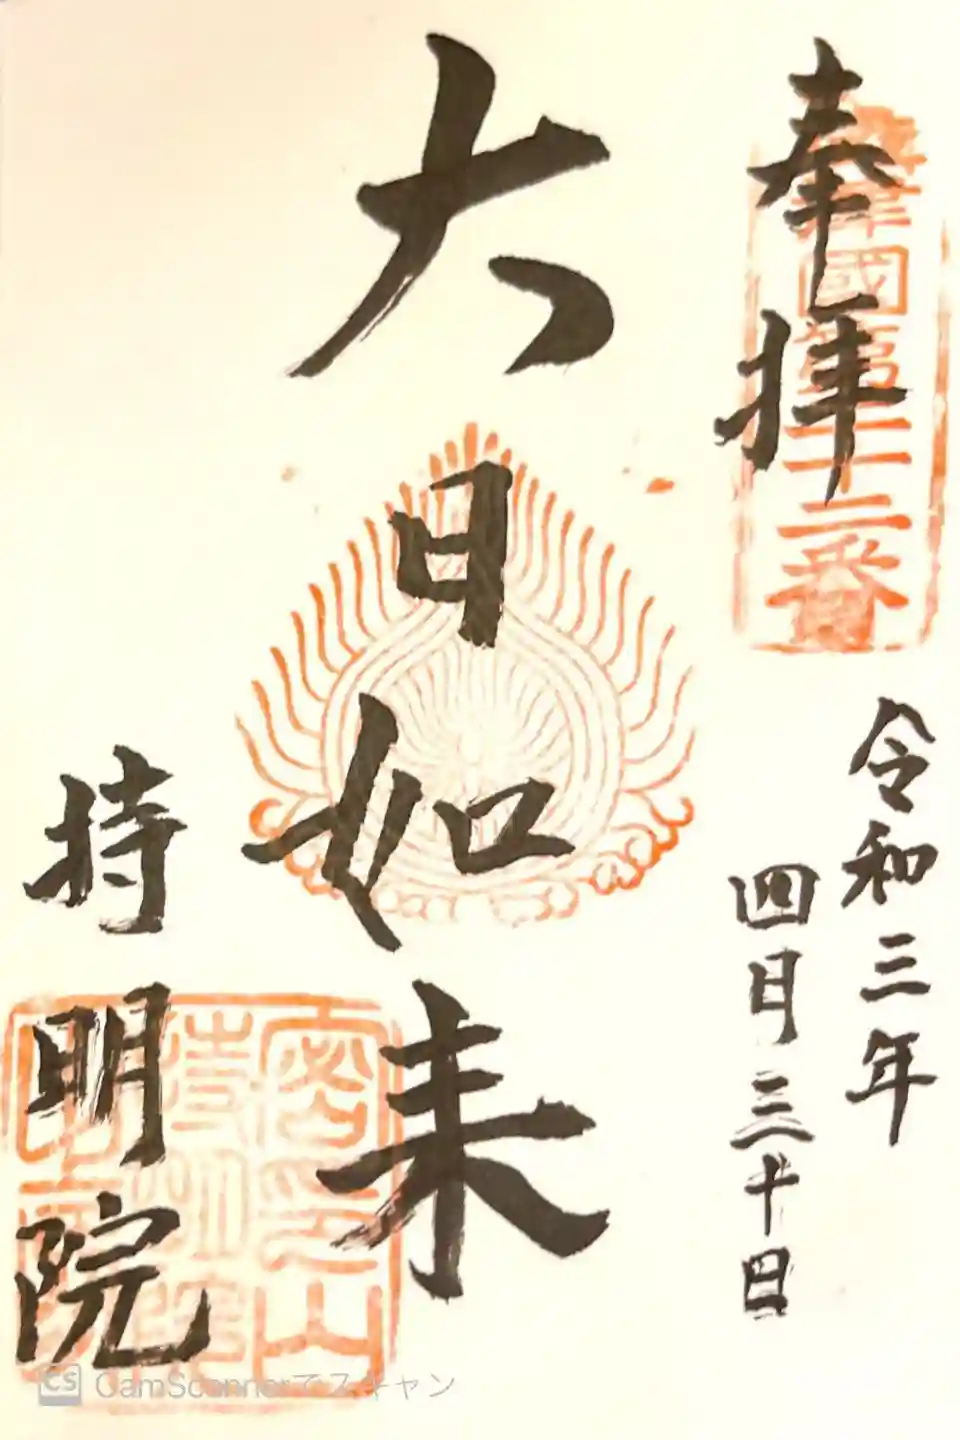 奉拝
國第二十二番
令和三年
四月三十日
大日如来
持明院
山
CS CamScannerでスキャン